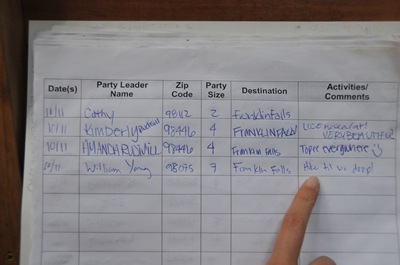 Date(s) Party Leader Name Zip Code Party Size Destination Activities/ Comments
10/11 Cathy 98112 2 Franklin Falls
10/11 Kimberly 98446 4 FRANKLIN FALLS VERY BEAUTIFUL
10/11 AMANDA 98446 4 Franklin Falls Topee everywhere
10/11 William Yang 98075 7 Franklin Falls Hike til we drop!